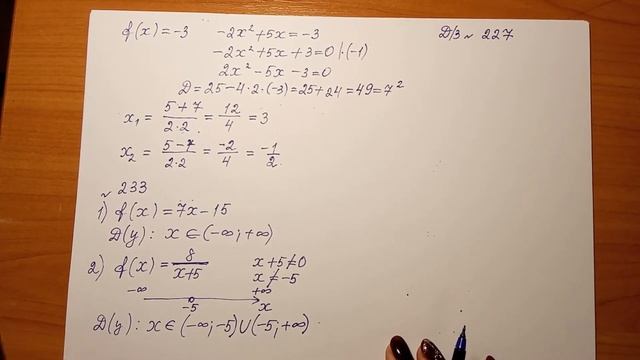 f(x) = -3   -2x² + 5x = -3   D/з ~ 227
-2x² + 5x + 3 = 0 | · (-1)
2x² - 5x - 3 = 0
D = 25 - 4 · 2 · (-3) = 25 + 24 = 49 = 7²
x₁ = (5 + 7)/(2·2) = 12/4 = 3
x₂ = (5 - 7)/(2·2) = -2/4 = -1/2
~ 233
1) f(x) = 7x - 15
D(y): x ∈ (-∞; +∞)
2) f(x) = 8/(x+5)   x + 5 ≠ 0
x ≠ -5
-∞   +∞
-5   x
D(y): x ∈ (-∞; -5) ∪ (-5; +∞)